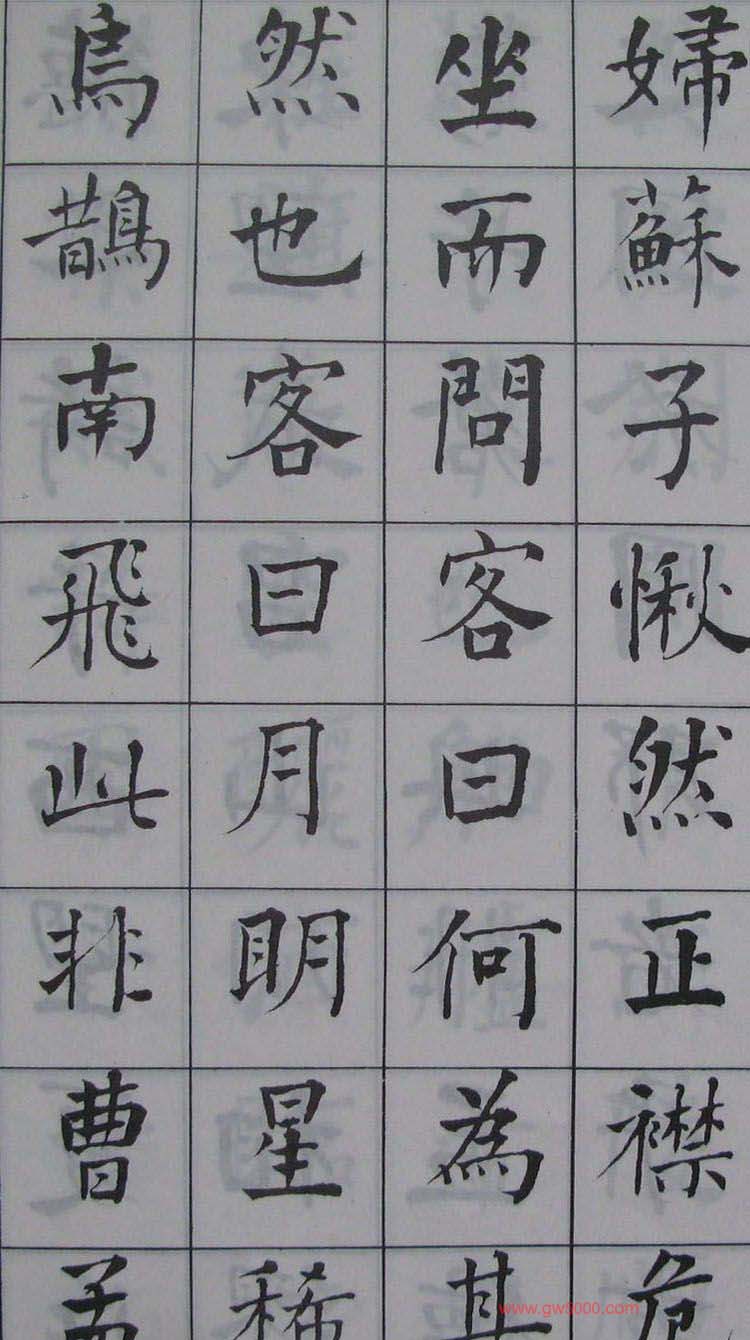 婦蘇子愀然正襟危
坐而問客曰何為其
然也客曰月明星稀
烏鵲南飛此非曹孟
www.gw5000.com